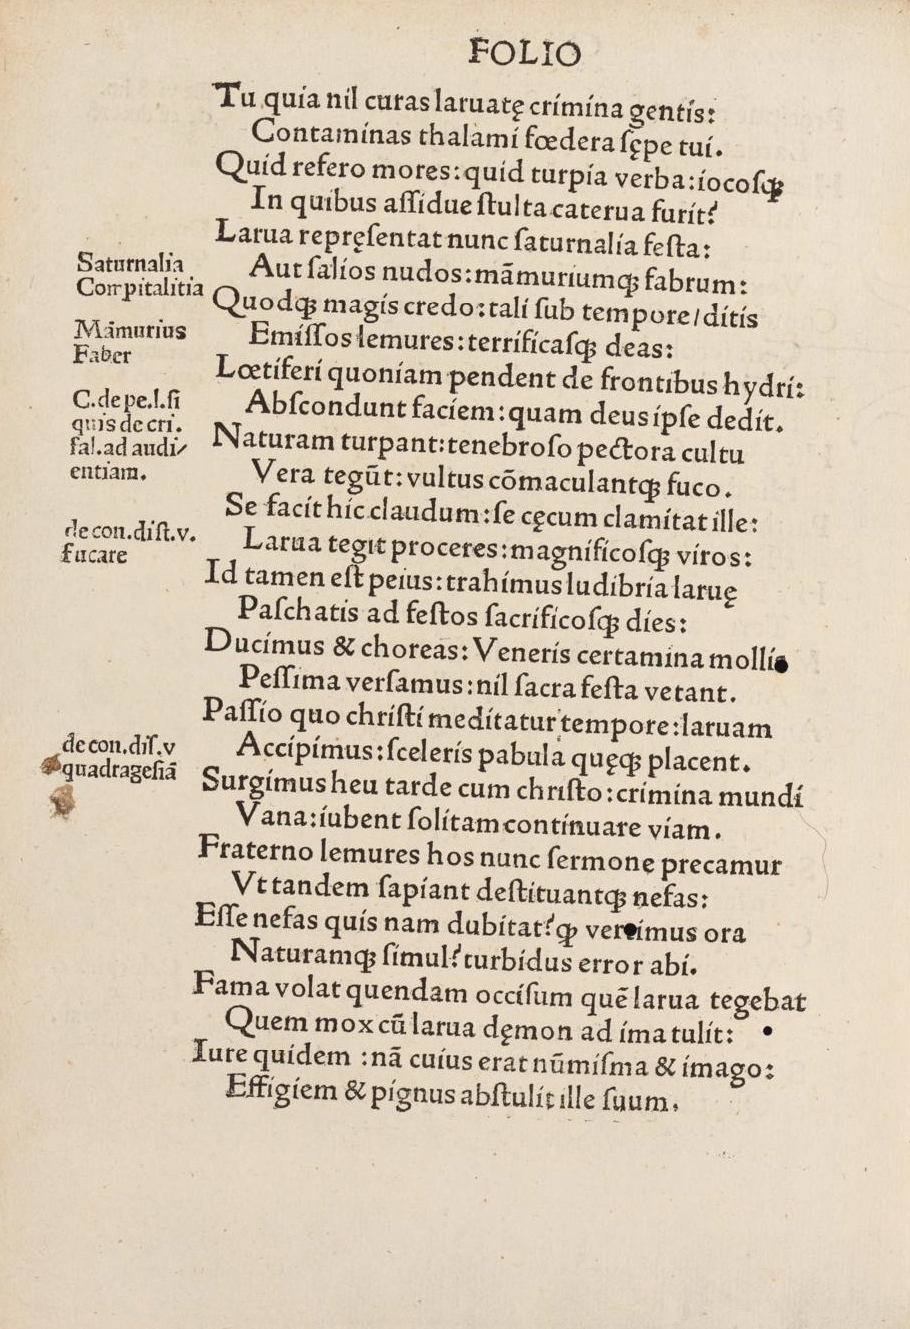 FOLIO
Tu quia nil curas laruatę crimina gentis:
Contaminas thalami fœdera ſępe tui.
Quid refero mores: quid turpia verba: iocoſqꝫ
In quibus aſſidue ſtulta caterua furit?
Larua repręſentat nunc ſaturnalia feſta:
Saturnalia
Aut ſalios nudos: māmuriumqꝫ fabrum:
Compitalitia
Quodqꝫ magis credo: tali ſub tempore/ditis
Māmurius
Emiſſos lemures: terrificaſqꝫ deas:
Faber
Lœtiferi quoniam pendent de frontibus hydri:
C. de pe.l.ſi
Abſcondunt faciem: quam deus ipſe dedit.
quis de cri.
Naturam turpant: tenebroſo pectora cultu
fal. ad audi/
Vera tegūt: vultus cōmaculantqꝫ fuco.
entiam.
Se facit hic claudum: ſe cęcum clamitat ille:
de con. diſt. v.
Larua tegit proceres: magnificoſqꝫ viros:
fucare
Id tamen eſt peius: trahimus ludibria laruę
Paſchatis ad feſtos ſacrificoſqꝫ dies:
Ducimus & choreas: Veneris certamina mollis
Peſſima verſamus: nil ſacra feſta vetant.
Paſſio quo chriſti meditatur tempore: laruam
de con. diſ. v
Accipimus: ſceleris pabula quęqꝫ placent.
quadrageſiā
Surgimus heu tarde cum chriſto: crimina mundi
Vana: iubent ſolitam continuare viam.
Fraterno lemures hos nunc ſermone precamur
Vt tandem ſapiant deſtituantqꝫ nefas:
Eſſe nefas quis nam dubitat? ꝙ verimus ora
Naturamqꝫ ſimul? turbidus error abi.
Fama volat quendam occiſum quē larua tegebat
Quem mox cū larua dęmon ad ima tulit:
Iure quidem : nā cuius erat nūmiſma & imago:
Effigiem & pignus abſtulit ille ſuum.